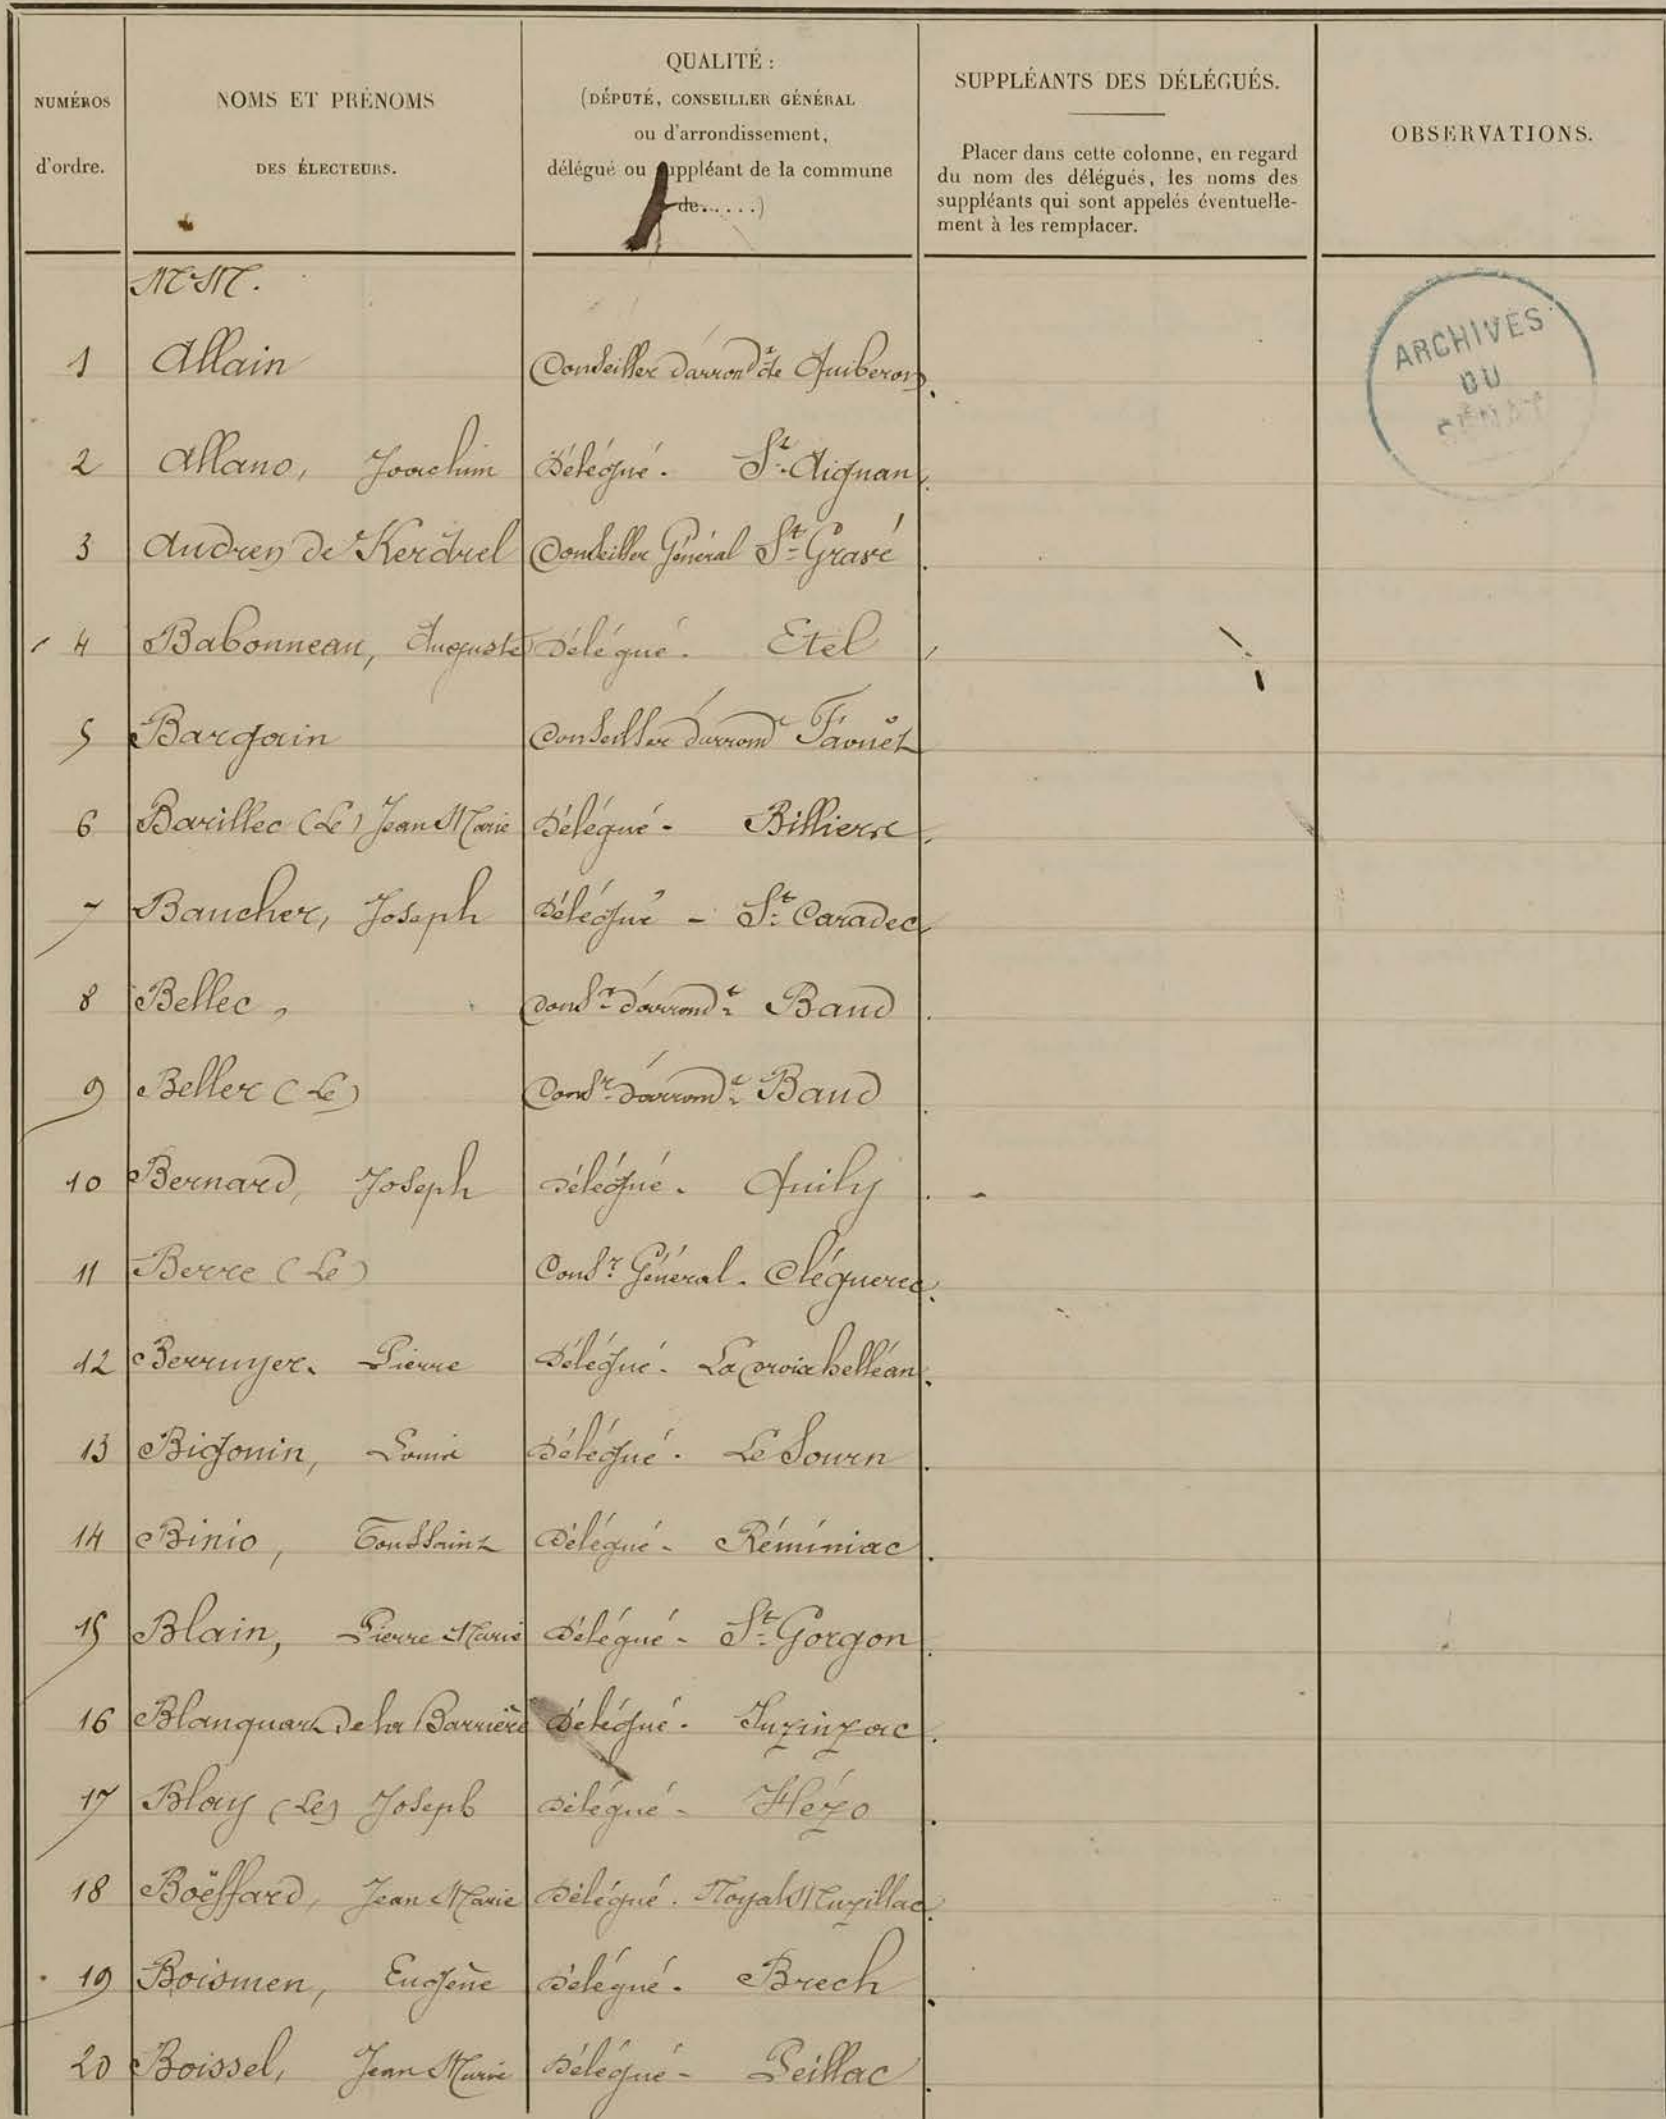 NUMÉROS
d'ordre.
NOMS ET PRÉNOMS
DES ÉLECTEURS.
QUALITÉ :
(DÉPUTÉ, CONSEILLER GÉNÉRAL
ou d'arrondissement,
délégué ou suppléant de la commune
de.....)
SUPPLÉANTS DES DÉLÉGUÉS.
Placer dans cette colonne, en regard
du nom des délégués, les noms des
suppléants qui sont appelés éventuelle-
ment à les remplacer.
OBSERVATIONS.
ARCHIVES
DU
SÉNAT
MM.
1 Allain Conseiller d'arrondt de Quiberon.
2 Allano, Joachim Délégué. St Aignan.
3 Audren de Kerdrel Conseiller Général St Gravé.
4 Babonneau, Auguste Délégué. Etel
5 Bargain Conseiller d'arrondt Faouët
6 Barillec (Le) Jean Marie Délégué - Billiers
7 Baucher, Joseph Délégué - St Caradec
8 Bellec, Consr d'arrondt Baud.
9 Beller (Le) Consr d'arrondt Baud.
10 Bernard, Joseph Délégué. Quily.
11 Berre (Le) Consr Général. Cléguerec.
12 Berruyer. Pierre Délégué. La Croix helléan.
13 Bigouin, Louis Délégué. Le Sourn.
14 Binio, Toussaint Délégué - Réminiac.
15 Blain, Pierre Marie Délégué - St Gorgon.
16 Blanquart de la Barrière Délégué. Inzinzac.
17 Blay (Le) Joseph Délégué - Hézo.
18 Boëffard, Jean Marie Délégué. Noyal Muzillac.
19 Boismen, Eugène Délégué. Brech.
20 Boissel, Jean Marie Délégué - Peillac.